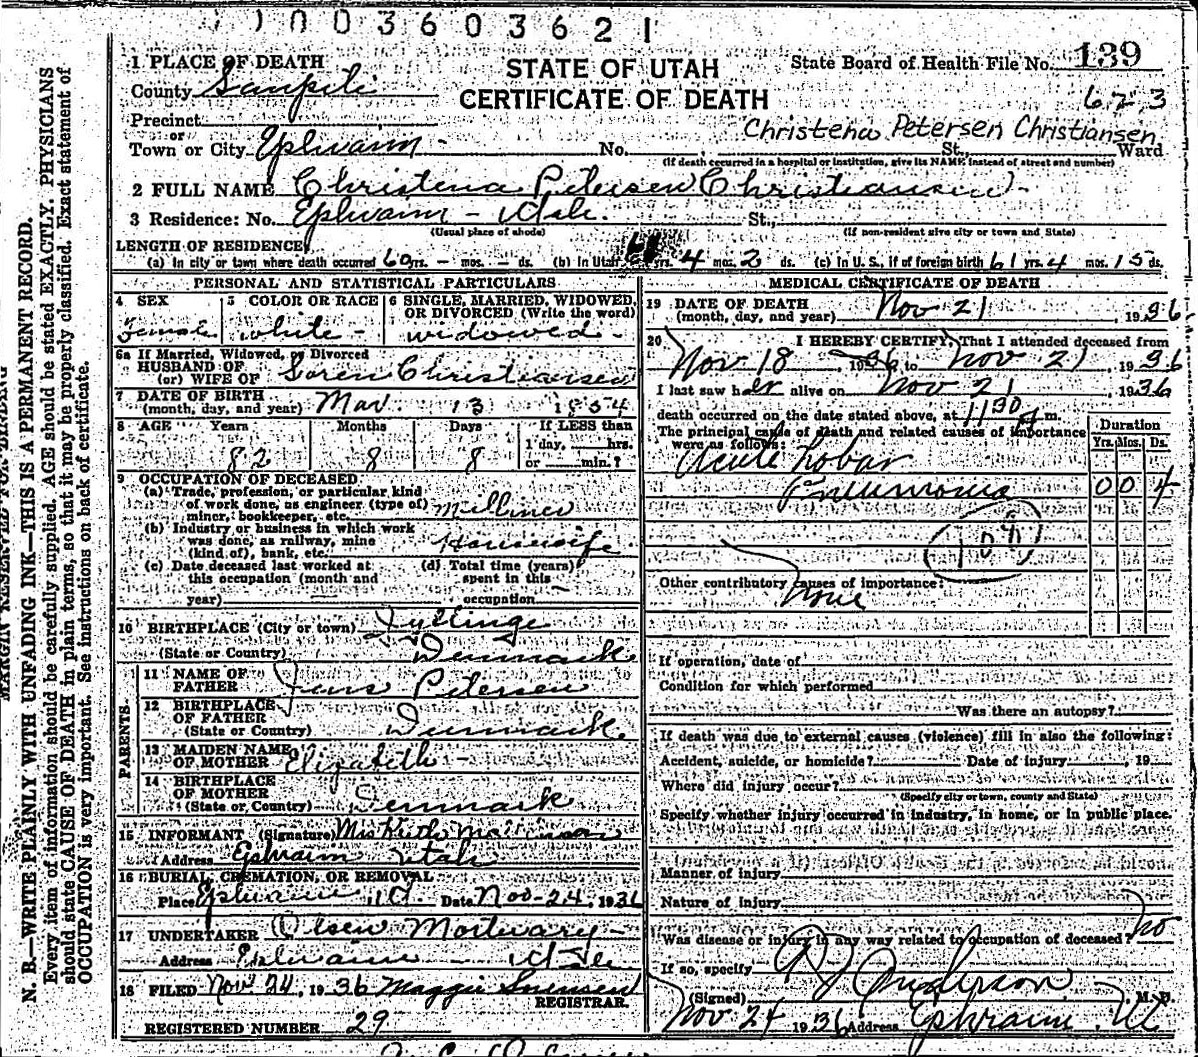 1003603621
1 PLACE OF DEATH
STATE OF UTAH
State Board of Health File No. 139
County Sanpete
CERTIFICATE OF DEATH
623
Precinct
Christena Petersen Christiansen
or
Town or City Ephraim No. , St., Ward
(If death occurred in a hospital or institution, give its NAME instead of street and number)
2 FULL NAME Christena Petersen Christiansen
3 Residence: No. Ephraim - Utah. St.,
(Usual place of abode) (If non-resident give city or town and State)
LENGTH OF RESIDENCE
(a) In city or town where death occurred 60 yrs. - mos. - ds. (b) In Utah 61 yrs. 4 mos. 2 ds. (c) In U. S., if of foreign birth 61 yrs. 4 mos. 15 ds.
PERSONAL AND STATISTICAL PARTICULARS
4 SEX 5 COLOR OR RACE 6 SINGLE, MARRIED, WIDOWED,
OR DIVORCED (Write the word)
Female white - widowed
6a If Married, Widowed, or Divorced
HUSBAND OF
(or) WIFE OF Soren Christiansen
7 DATE OF BIRTH
(month, day, and year) Mar. 13 1854
8 AGE Years Months Days If LESS than
1 day, hrs.
82 8 8 or min.?
9 OCCUPATION OF DECEASED
(a) Trade, profession, or particular kind
of work done, as engineer (type of)
miner, bookkeeper, etc. Milliner
(b) Industry or business in which work
was done, as railway, mine
(kind of), bank, etc. Housewife
(c) Date deceased last worked at (d) Total time (years)
this occupation (month and spent in this
year) occupation
10 BIRTHPLACE (City or town) Jyllinge
(State or Country) Denmark
PARENTS
11 NAME OF
FATHER Jens Petersen
12 BIRTHPLACE
OF FATHER
(State or Country) Denmark
13 MAIDEN NAME
OF MOTHER Elizabeth -
14 BIRTHPLACE
OF MOTHER
(State or Country) Denmark
15 INFORMANT (Signature) Mrs
Address Ephraim Utah
16 BURIAL, CREMATION, OR REMOVAL
Place Ephraim Ut. Date Nov-24, 1936
17 UNDERTAKER Olsen Mortuary
Address Ephraim - Utah
18 FILED Nov 24, 1936 Maggie Sorensen
REGISTRAR.
REGISTERED NUMBER 29
MEDICAL CERTIFICATE OF DEATH
19 DATE OF DEATH
(month, day, and year) Nov 21, 1936
20 I HEREBY CERTIFY, That I attended deceased from
Nov 18, 1936 to Nov 21, 1936
I last saw her alive on Nov 21 1936
death occurred on the date stated above, at 11 30 m.
The principal cause of death and related causes of importance
were as follows:
Duration
Yrs. Mos. Ds.
Acute Lobar
Pneumonia 0 0 4
Other contributory causes of importance:
None
If operation, date of
Condition for which performed
Was there an autopsy?
If death was due to external causes (violence) fill in also the following:
Accident, suicide, or homicide? Date of injury , 19
Where did injury occur?
(Specify city or town, county and State)
Specify whether injury occurred in industry, in home, or in public place.
Manner of injury
Nature of injury
Was disease or injury in any way related to occupation of deceased? no
If so, specify
(Signed) Anderson M. D.
Nov 24 1936 Address Ephraim, Ut
MARGIN RESERVED FOR BINDING
N. B.—WRITE PLAINLY WITH UNFADING INK—THIS IS A PERMANENT RECORD.
Every item of information should be carefully supplied. AGE should be stated EXACTLY. PHYSICIANS
should state CAUSE OF DEATH in plain terms, so that it may be properly classified. Exact statement of
OCCUPATION is very important. See instructions on back of certificate.